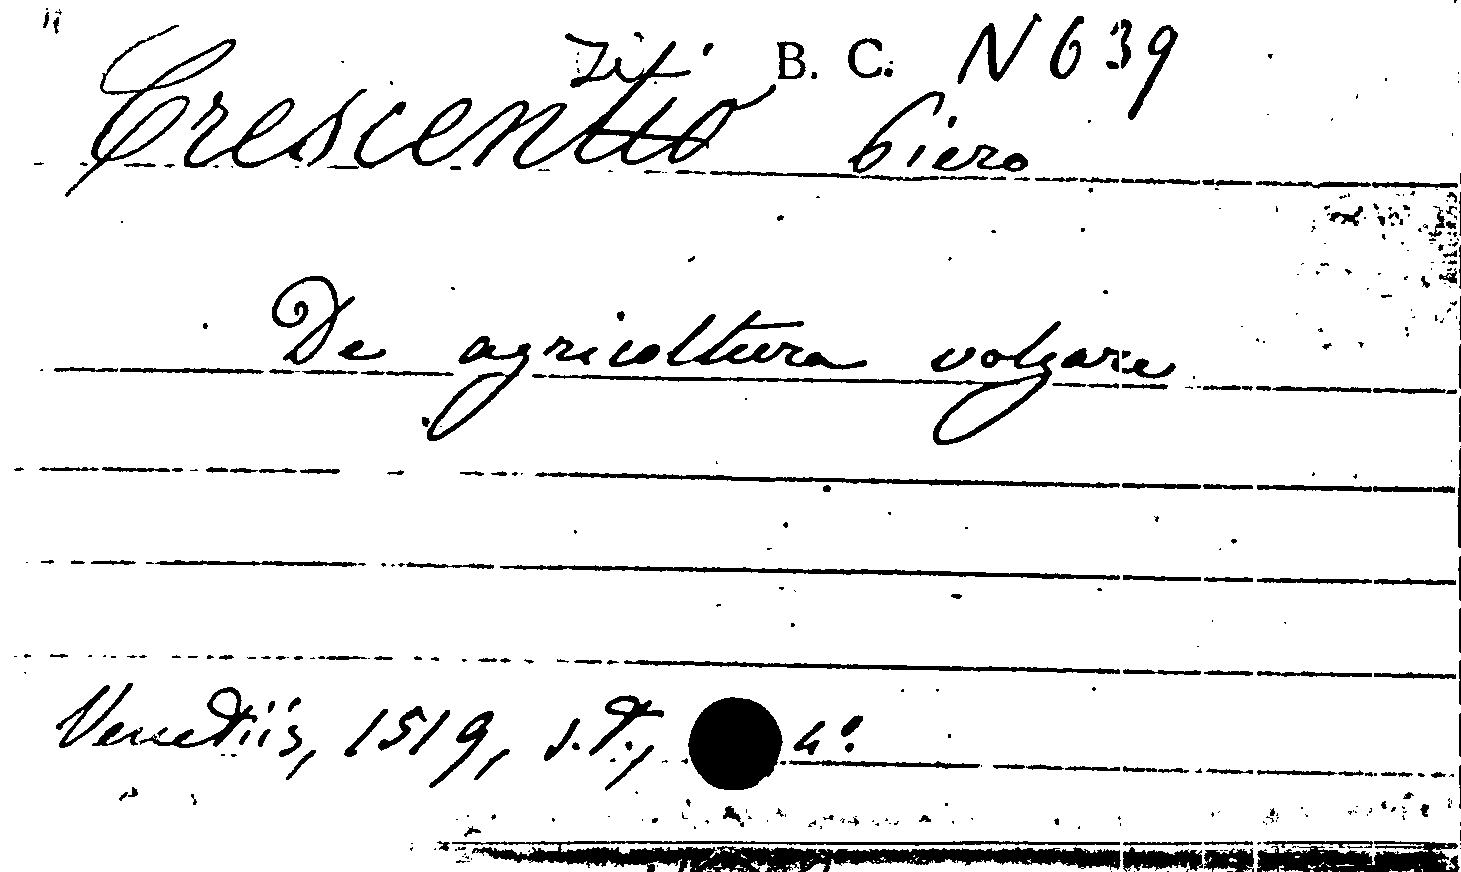 B. C. N 639
Crescentio Piero
De agricoltura volgare
Venetiis, 1519, s.T., 4°.